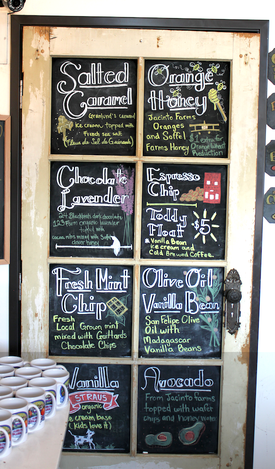 Salted
Caramel
caramel
Ice cream topped with
French sea salt
Orange
Honey
Jacinto Farms
Oranges
and Soffel
Farms Honey
Chocolate
Lavender
organic lavender
Espresso
Chip
Toddy
Float $5
Vanilla Bean
Ice cream and
Cold Brewed Coffee
Fresh Mint
Chip
Fresh
Local Grown mint
mixed with Guittard
Chocolate Chips
Olive Oil
Vanilla Bean
San Felipe Olive
Oil with
Madagascar
Vanilla Beans
Vanilla
STRAUS
organic
ice cream base
(kids love it)
Avocado
From Jacinto Farms
topped with wafer
chips and honey